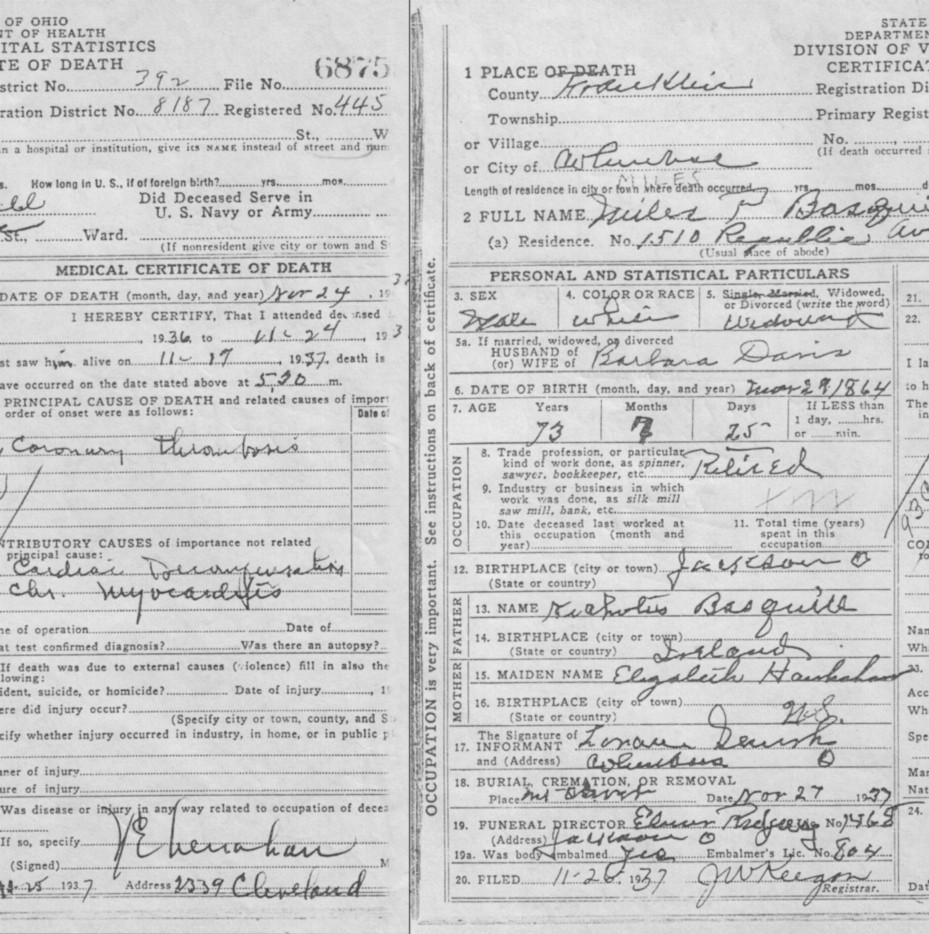 OF OHIO
NT OF HEALTH
ITAL STATISTICS
TE OF DEATH
6875
strict No. 392 File No.
ration District No. 8187 Registered No. 445
St., W
n a hospital or institution, give its NAME instead of street and num
s. How long in U. S., if of foreign birth? yrs. mos.
Did Deceased Serve in
U. S. Navy or Army
St., Ward.
(If nonresident give city or town and S
MEDICAL CERTIFICATE OF DEATH
DATE OF DEATH (month, day, and year) Nov 24, 19
I HEREBY CERTIFY, That I attended deceased
1936 to 11-24, 193
st saw him alive on 11-17 1937. death is
ave occurred on the date stated above at 5:30 m.
PRINCIPAL CAUSE OF DEATH and related causes of import
order of onset were as follows:
Date of
Coronary Thrombosis
NTRIBUTORY CAUSES of importance not related
principal cause:
Cardiac Decompensation
Chr. Myocarditis
me of operation Date of
at test confirmed diagnosis? Was there an autopsy?
If death was due to external causes (violence) fill in also the
lowing:
ident, suicide, or homicide? Date of injury, 1
ere did injury occur?
(Specify city or town, county, and S
cify whether injury occurred in industry, in home, or in public p
nner of injury
ure of injury
Was disease or injury in any way related to occupation of decea
If so, specify
(Signed) M
25 1937 Address 2339 Cleveland
OCCUPATION is very important. See instructions on back of certificate.
STATE
DEPARTMEN
DIVISION OF V
CERTIFICA
1 PLACE OF DEATH
County Franklin Registration Di
Township Primary Regist
or Village No.
or City of Columbus (If death occurred
MILES
Length of residence in city or town where death occurred yrs. mos. d
2 FULL NAME Miles P Basqui
(a) Residence. No. 1510 Republic Av
(Usual place of abode)
PERSONAL AND STATISTICAL PARTICULARS
3. SEX 4. COLOR OR RACE 5. Single, Married, Widowed,
or Divorced (write the word)
Male White Widowed
5a. If married, widowed, or divorced
HUSBAND of
(or) WIFE of Barbara Davis
6. DATE OF BIRTH (month, day, and year) 29, 1864
7. AGE Years Months Days If LESS than
1 day, hrs.
or min.
73 7 25
OCCUPATION
8. Trade profession, or particular
kind of work done, as spinner,
sawyer, bookkeeper, etc. Retired
9. Industry or business in which
work was done, as silk mill
saw mill, bank, etc.
10. Date deceased last worked at
this occupation (month and
year)
11. Total time (years)
spent in this
occupation
12. BIRTHPLACE (city or town) Jackson O
(State or country)
FATHER
13. NAME Nicholus Basquill
14. BIRTHPLACE (city or town)
(State or country) Ireland
MOTHER
15. MAIDEN NAME Elizabeth
16. BIRTHPLACE (city or town)
(State or country)
17. The Signature of
INFORMANT
and (Address) Columbus O
18. BURIAL, CREMATION, OR REMOVAL
Place Date Nov 27 1937
19. FUNERAL DIRECTOR Elmer No. 1468
(Address) Jackson O
19a. Was body embalmed yes Embalmer's Lic. No. 804
20. FILED 11-26, 1937 J W Keegan
Registrar.
21.
22.
I la
to h
The
in
CON
fo
Nam
Wha
23.
Acc
Wh
Spe
Man
Nat
24.
Dat